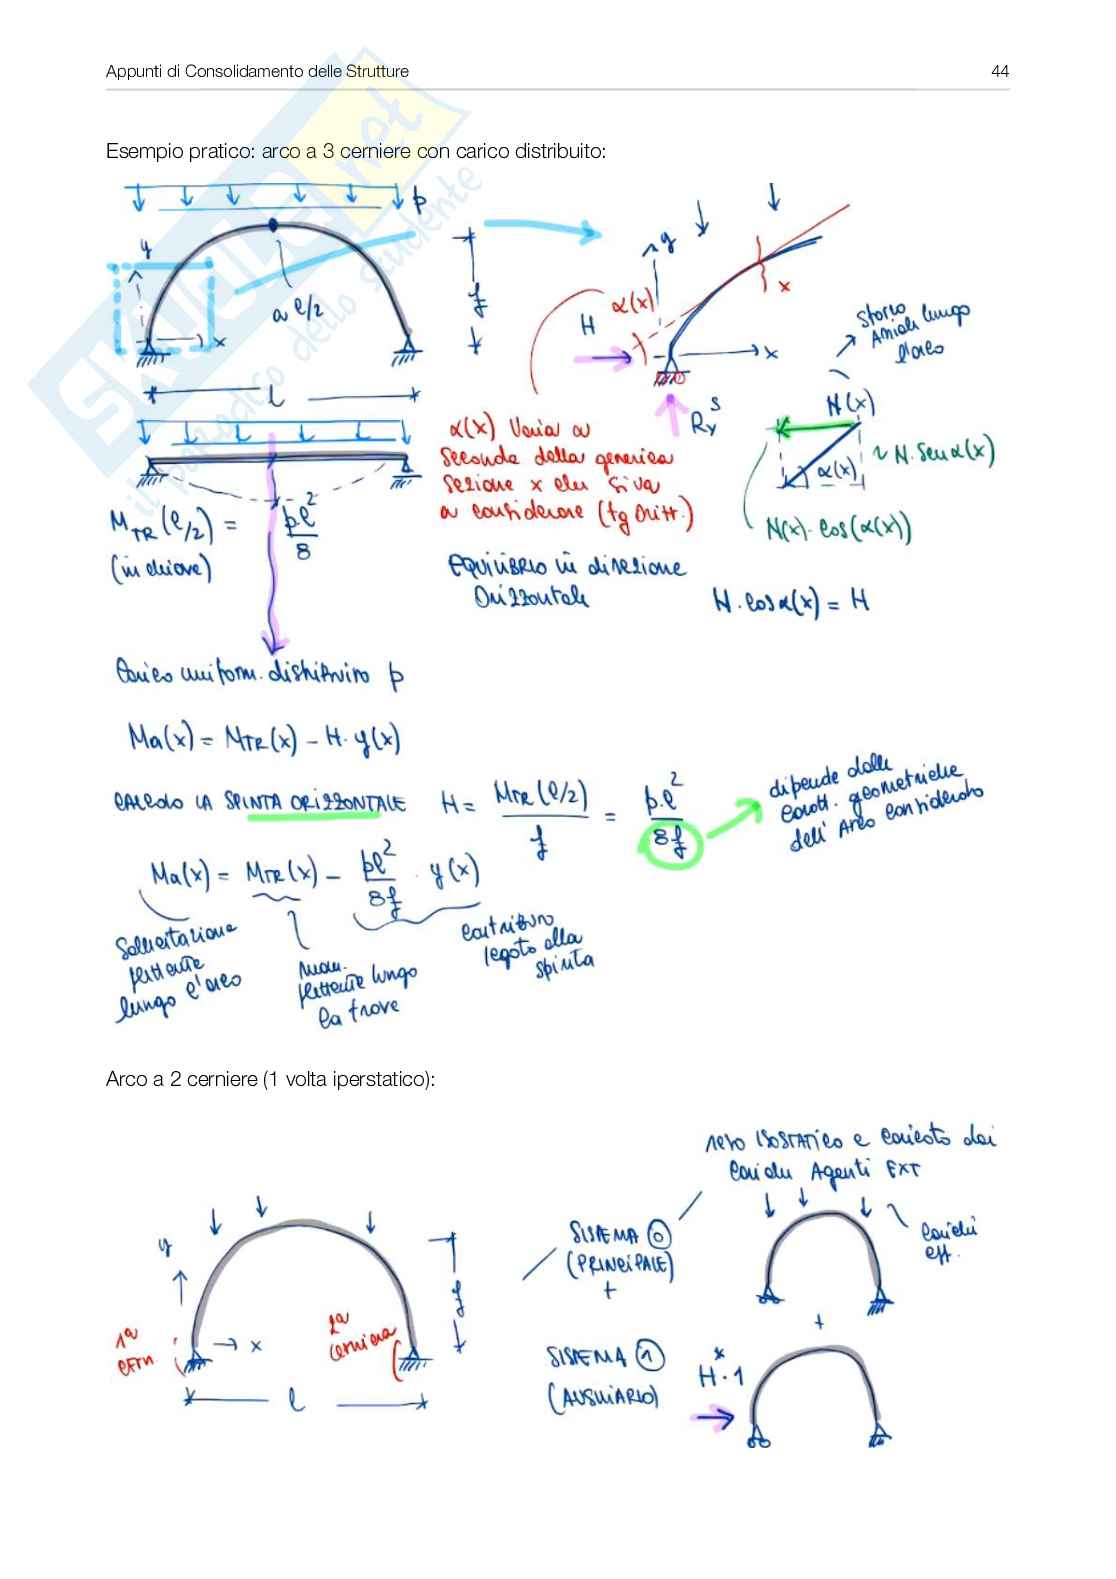 Appunti di Consolidamento delle Strutture 44
Esempio pratico: arco a 3 cerniere con carico distribuito:
p
y
a l/2
x
f
l
y
α(x)
H
x
x
R_y^s
storzo
Assiale lungo
l'arco
N(x)
α(x)
N·senα(x)
N(x)·cos(α(x))
α(x) Varia a
seconda della generica
sezione x che si va
a considerare (tg Dritt.)
M_TR(l/2) = pl²/8
(in chiave)
EQUILIBRIO in direzione
Orizzontale
N·cosα(x) = H
Carico uniform. distribuito p
Ma(x) = M_TR(x) - H·y(x)
CALCOLO LA SPINTA ORIZZONTALE H = M_TR(l/2)/f = p·l²/8f
dipende dalle
caratt. geometriche
dell' Arco considerato
Ma(x) = M_TR(x) - pl²/8f · y(x)
Sollecitazione
flettente
lungo l'arco
mom.
flettente lungo
la trave
contributo
legato alla
spinta
Arco a 2 cerniere (1 volta iperstatico):
reso ISOSTATICO e caricato dai
carichi Agenti EXT
SISTEMA 0
(PRINCIPALE)
+
carichi
eff.
y
f
x
1ª
cern
2ª
cerniera
l
+
SISTEMA 1
(AUSILIARIO)
H*·1
SKUOLA.net
il paradiso dello studente